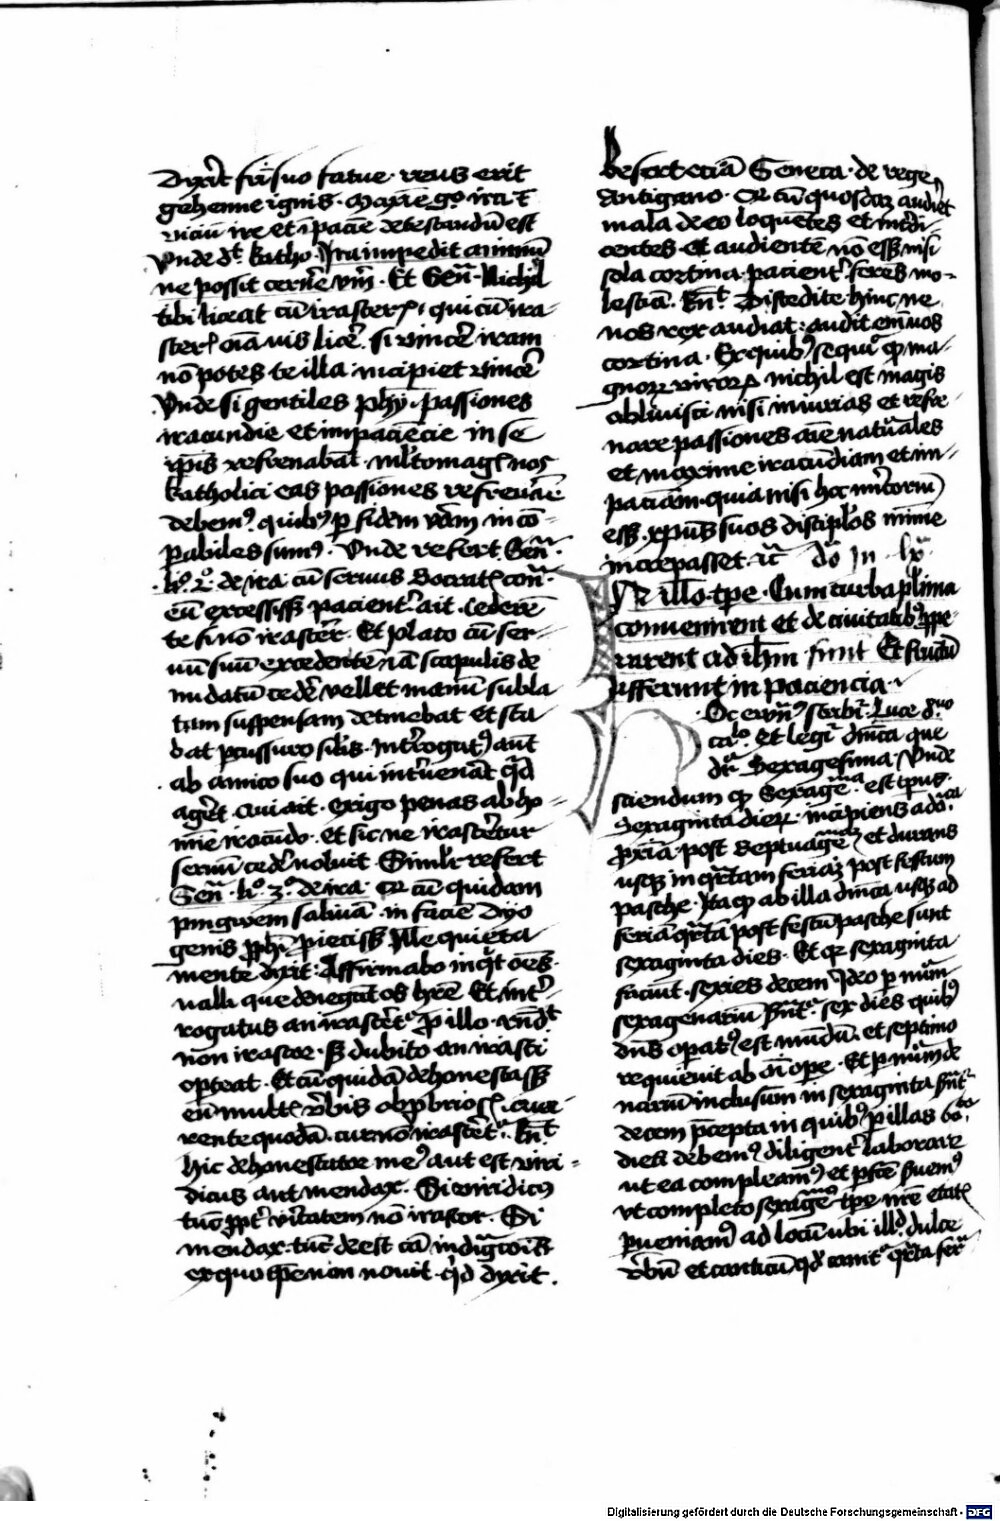 dixerit fratri suo fatue reus erit
gehenne ignis. Maxime ergo ira et
vicium ire et impaciencie detestandum est
Unde dicit katho. Ira impedit animum
ne possit cernere verum. Et Seneca Nichil
tibi liceat cum irasceris, qui cum ira-
sceris omnia vis licere. si vincere iram
non potes te illa incipiet vincere
Unde si gentiles philosophi passiones
iracundie et impaciencie in se
ipsis refrenabant. multomagis nos
katholici eas passiones refrenare
debemus quibus per fidem in com-
parabiles sumus. Unde refert Seneca
li. 2. de ira cum servus Socratis contra
eum excessisset pacienter ait. cederem
te si non irascerer. Et plato cum ser-
vum suum excedentem iam scapulis de
nudatum cedere vellet manum subla
tam suspensam detinebat et sta
bat percussuro similis. Interrogatus autem
ab amico suo qui intervenerat quid
ageret. Cui ait. exigo penas ab ho-
mine iracundo. et sic ne irasceretur
servum cedere noluit. Similiter refert
Seneca. li. 3. de ira. cum quidam
pingwem salivam in faciem dyo
genis philosophi proiecisset. Ille quieta
mente dixit: Affirmabo inquit omnes
falli que denegant os habere. Et inter-
rogatus an irasceretur pro illo. respondit
non irascor. sed dubito an irasci
oporteat. Et cum quidam dehonestasset
eum multis verbis obprobriosis. quer-
rente quodam. cur non irasceretur. Respondit
hic dehonestator meus aut est veri-
dicus aut mendax. Si veridicus
tunc propter veritatem non irascor. Si
mendax. tunc deest causa indignationis
ex quo ipse non novit. quid dixit.
Refert eciam Seneca. de rege
Antigono. cum quosdam audiret
mala de eo loquentes et maledi-
centes et audientem non esset nisi
sola cortina. pacienter ferens mo-
lestiam. Respondit. Discedite hinc ne
vos rex audiat: audit enim vos
cortina. Ex quibus sequitur quod ma-
gnorum virorum nichil est magis
oblivisci nisi iniurias et refre-
nare passiones anime naturales
et maxime iracundiam et im-
pacienciam. quia nisi hoc meritorium
esset. christus suos discipulos minime
increpasset. Dominica in lx
In illo tempore. Cum turba plurima
convenirent et de civitatibus prope
rarent ad ihesum sunt Et fructum
afferunt in paciencia.
Hoc ewangelium scribitur Luce 8vo
capitulo. Et legitur dominica que
dicitur Sexagesima. Unde
sciendum quod Sexagesima est tempus
sexaginta dierum. incipiens a dominica
proxima post Septuagesimam et durans
usque in quartam feriam post festum
pasche. Itaque ab illa dominica usque ad
feriam quartam post festum pasche sunt
sexaginta dies. Et quia sexaginta
faciunt. sexies decem Ideo per numerum
sexagenarium significantur. sex dies quibus
dominus operatus est mundum. et septimo
requievit ab omni opere. Et per numerum de
narium inclusum in sexaginta significantur
decem precepta in quibus per illas sex
dies debemus diligenter laborare
ut ea compleamus et perfecte servemus
ut completo sexagesime tempore nostre etatis
perveniamus ad locum ubi illud dulce
verbum et canticum quod canitur quarta feria